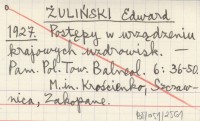 ŻULIŃSKI Edward
1927. Postępy w urządzeniu
krajowych uzdrowisk. —
Pam. Pol. Tow. Balneol. 6: 36-50.
M. in. Krościenko, Szczaw-
nica, Zakopane.